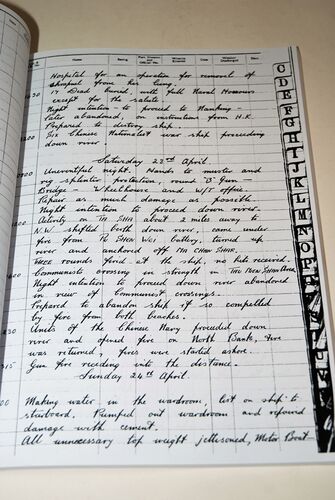 Name Rating Date
Hospital for an operation for removal of
shrapnel from his lung.
17 Dead buried, with full Naval Honours
except for the salute.
Night intention - to proceed to Nanking -
later abandoned, on instruction from H.K.
Prepared to destroy ship.
Six Chinese Nationalist war ship proceeding
down river.
Saturday 23rd April
Uneventful night. Hands to muster and
rig splinter protection, round B. Gun -
Bridge - Wheelhouse and W/T office.
Repair as much damage as possible.
Night intention to proceed down river.
Activity in TA SHA about 2 miles away to
N.W. shifted birth down river, came under
fire from battery, turned up
river and anchored off
Three rounds fired at the ship, no hits received.
Communists crossing in strength in
Night intention to proceed down river abandoned
in view of Communist crossings.
Prepared to abandon ship if so compelled
by fire from both beaches.
Units of the Chinese Navy proceeded down
river and opened fire on North Bank, fire
was returned, fires were started ashore.
Gun fire receding into the distance.
Sunday 24th April.
Making water in the wardroom, list on ship to
starboard. Pumped out wardroom and repaired
damage with cement.
All unnecessary top weight jettisoned, Motor Boat
C
D
E
F
G
H
I
J
K
L
M
N
O
P